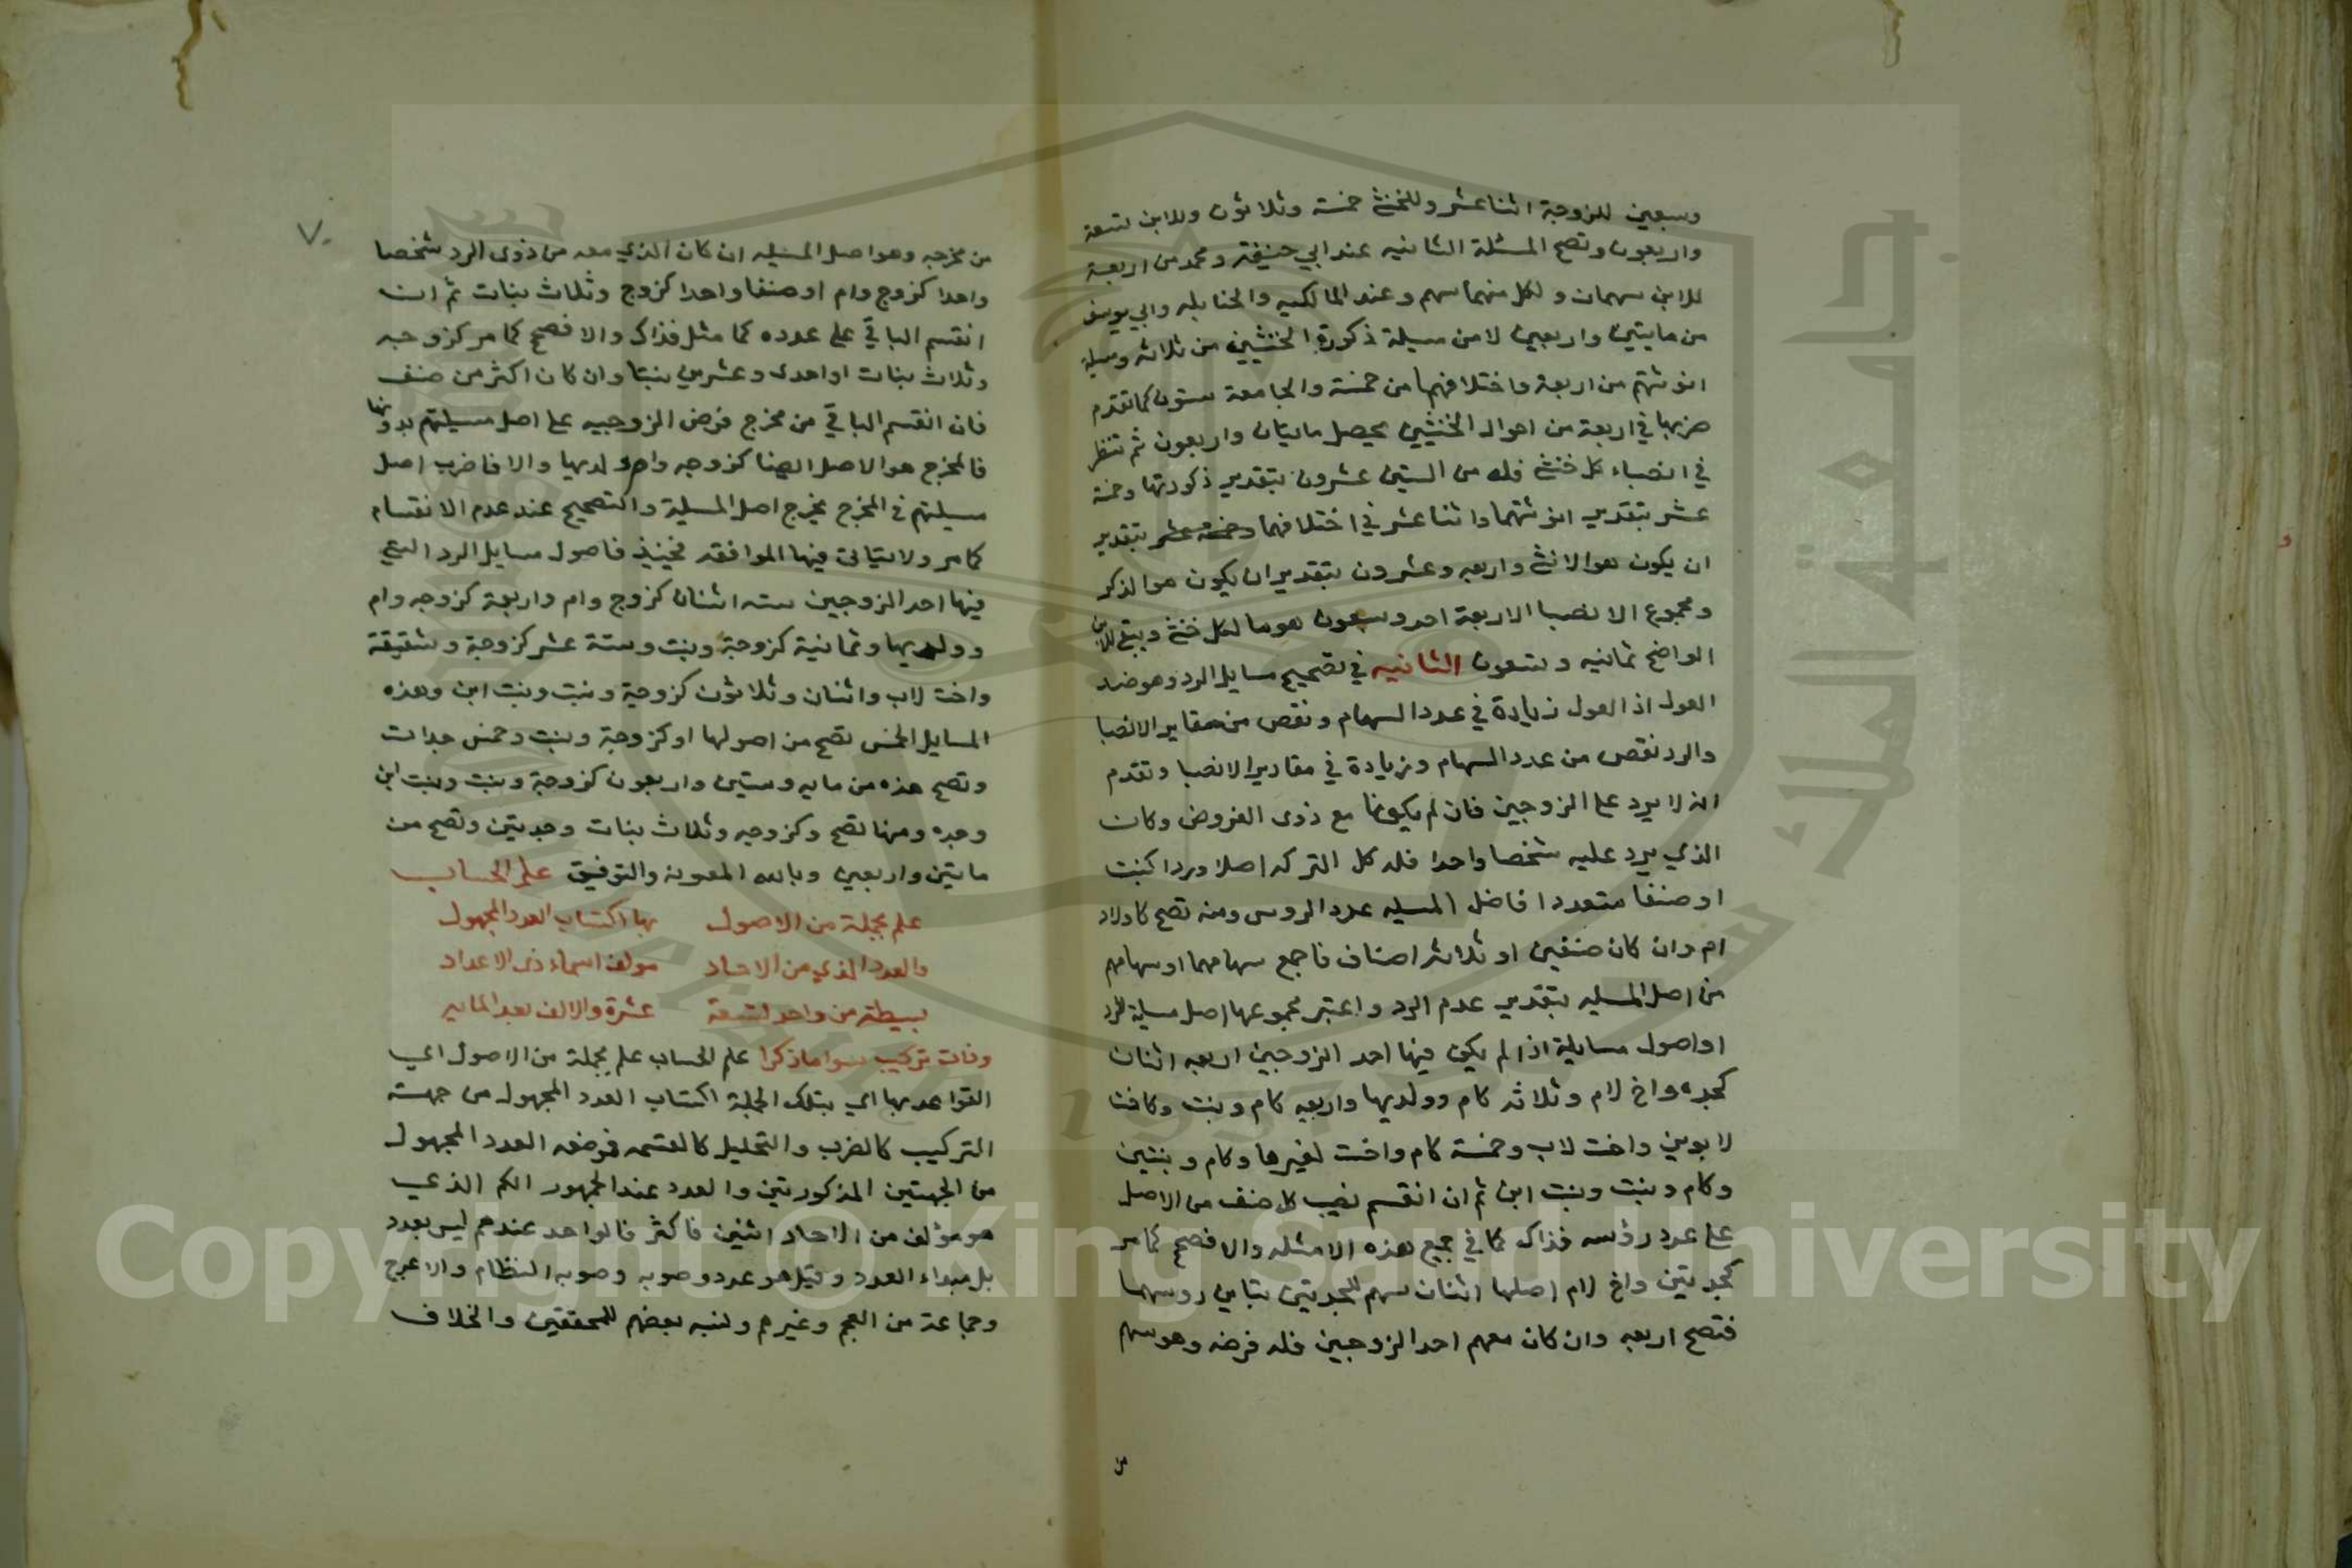 وسبعين للزوجة اثنا عشر وللخنثى خمسة وثلاثون وللابن تسعة
واربعون وتصح المسئلة الثانيه عند ابي حنيفة ومحمد من اربعة
للابن سهمان ولكل منهما سهم وعند المالكيه والحنابله وابي يوسف
من مايتين واربعين لان مسيلة ذكورة الخنثيين من ثلاثه ومسيلة
انوثتهم من اربعة واختلافهما من خمسة والجامعة ستون كما تقدم
ضربها في اربعة من احوال الخنثيين يحصل مايتان واربعون ثم تنظر
في انصباء كل خنثى فله من الستين عشرون بتقدير ذكورتها وخمسة
عشر بتقدير انوثتهما واثنا عشر في اختلافهما وخمسة عشر بتقدير
ان يكون هو الانثى واربعه وعشرون بتقدير ان يكون هو الذكر
ومجموع الانصبا الاربعة احد وسبعون هو ما لكل خنثى ويبقى للابن
الواضح ثمانيه وتسعون الثانيه في تصحيح مسايل الرد وهو ضد
العول اذ العول زيادة في عدد السهام ونقص من مقادير الانصبا
والرد نقص من عدد السهام وزيادة في مقادير الانصبا وتقدم
انه لا يرد على الزوجين فان لم يكونا مع ذوى الفروض وكان
الذي يرد عليه شخصا واحدا فله كل التركه اصلا وردا كبنت
او صنفا متعددا فاصل المسيله عدد الروس ومنه تصح كاولاد
ام وان كان صنفين او ثلاثه اصناف فاجمع سهامهما او سهامهم
من اصل المسيله بتقدير عدم الرد واعتبر مجموعها اصل مسيلة الرد
او اصول مسايلة اذا لم يكن فيها احد الزوجين اربعه اثنان
كجده واخ لام وثلاثه كام وولديها واربعه كام وبنت وكاخت
لابوين واخت لاب وخمسة كام واخت لغيرها وكام وبنتين
وكام وبنت وبنت ابن ثم ان انقسم نصيب كل صنف من الاصل
على عدد رؤسه فذاك كما في جميع هذه الامثله والا فصحح كما مر
كجدتين واخ لام اصلها اثنان سهم للجدتين يتاين روسهما
فتصح اربعه وان كان معهم احد الزوجين فله فرضه وهو سهم
من
٧٠
من مخرجه وهو اصل المسيله ان كان الذي معه من ذوى الرد شخصا
واحدا كزوج وام او صنفا واحدا كزوج وثلاث بنات ثم ان
انقسم الباقي على عدده كما مثل فذاك والا فصحح كما مر كزوجه
وثلاث بنات او احدى وعشرين بنتا وان كان اكثر من صنف
فان انقسم الباقي من مخرج فرض الزوجيه على اصل مسيلتهم بدونها
فالمخرج هو الاصل ايضا كزوجه وام وولديها والا فاضرب اصل
مسيلتهم في المخرج يخرج اصل المسيلة والتصحيح عند عدم الانقسام
كما مر ولا يتاتى فيها الموافقه فحينيذ فاصول مسايل الرد التي
فيها احد الزوجين سته اثنان كزوج وام واربعة كزوجه وام
وولديها وثمانية كزوجة وبنت وستة عشر كزوجة وشقيقة
واخت لاب واثنان وثلاثون كزوجة وبنت وبنت ابن وهذه
المسايل الخمس تصح من اصولها او كزوجة وبنت وخمس جدات
وتصح هذه من مايه وستين واربعون كزوجة وبنت وبنت ابن
وجده ومنها تصح وكزوجه وثلاث بنات وجدتين وتصح من
مايتين واربعين وبالله المعونه والتوفيق علم الحساب
علم بجملة من الاصول بها اكتساب العدد المجهول
والعدد الذي من الاحاد مولف اسماء ذى الاعداد
بسيطة من واحد لتسعة عشرة والالف بعد المايه
وذات تركيب سوا ما ذكرا علم الحساب علم بجملة من الاصول اي
القواعد بها اي بتلك الجملة اكتساب العدد المجهول من جهت
التركيب كالضرب والتحليل كالقسمه فوضعه العدد المجهول
من الجهتين المذكورتين والعدد عند الجمهور الكم الذي
هو مؤلف من الاحاد اثنين فاكثر فالواحد عندهم ليس بعدد
بل مبداء العدد وقيل هو عدد وصوبه وصوبه النظام والاعرج
وجماعة من العجم وغيرهم ونسبه بعضهم للمحققين والخلاف
Copyright © King Saud University
جامعة الملك سعود
1957